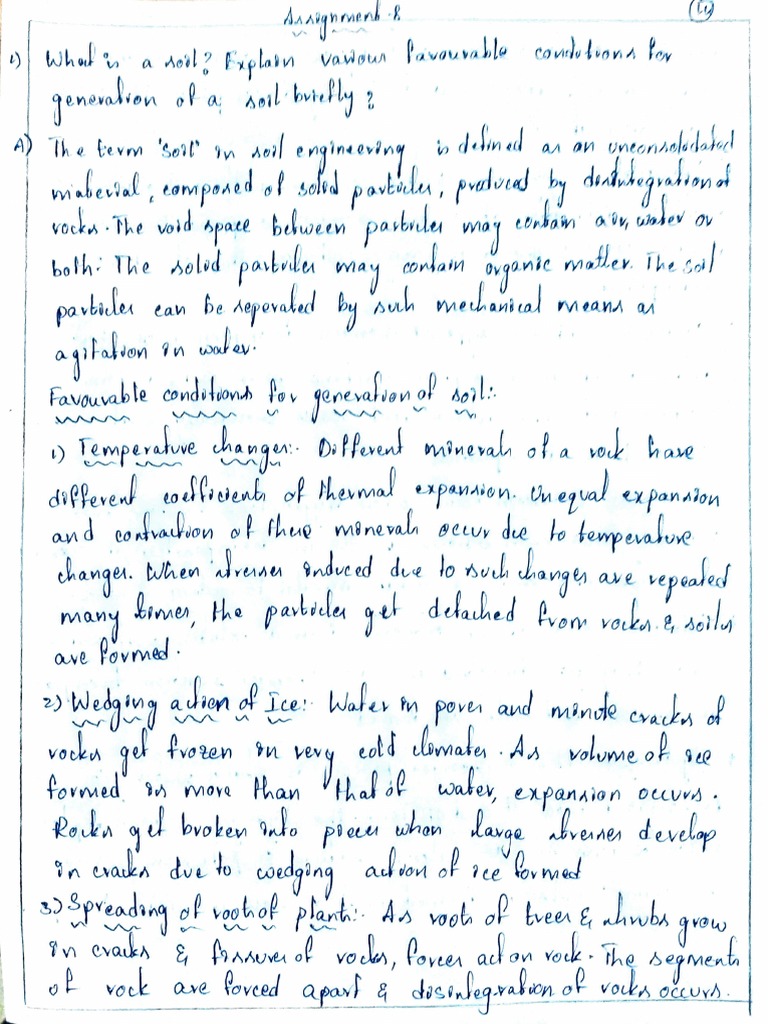 Assignment-8
1) What is a soil? Explain various favourable conditions for
generation of a soil briefly?
A) The term 'soil' in soil engineering is defined as an unconsolidated
material, composed of solid particles, produced by disintegration of
rocks. The void space between particles may contain air, water or
both. The solid particles may contain organic matter. The soil
particles can be seperated by such mechanical means as
agitation in water.
Favourable conditions for generation of soil:-
1) Temperature changes:- Different minerals of a rock have
different coefficients of thermal expansion. Unequal expansion
and contraction of these minerals occur due to temperature
changes. When stresses induced due to such changes are repeated
many times, the particles get detached from rocks & soils
are formed.
2) Wedging action of Ice:- Water in pores and minute cracks of
rocks get frozen in very cold climates. As volume of ice
formed is more than that of water, expansion occurs.
Rocks get broken into pieces when large stresses develop
in cracks due to wedging action of ice formed
3) Spreading of roots of plants:- As roots of trees & shrubs grow
in cracks & fissures of rocks, forces act on rock. The segments
of rock are forced apart & disintegration of rocks occurs.